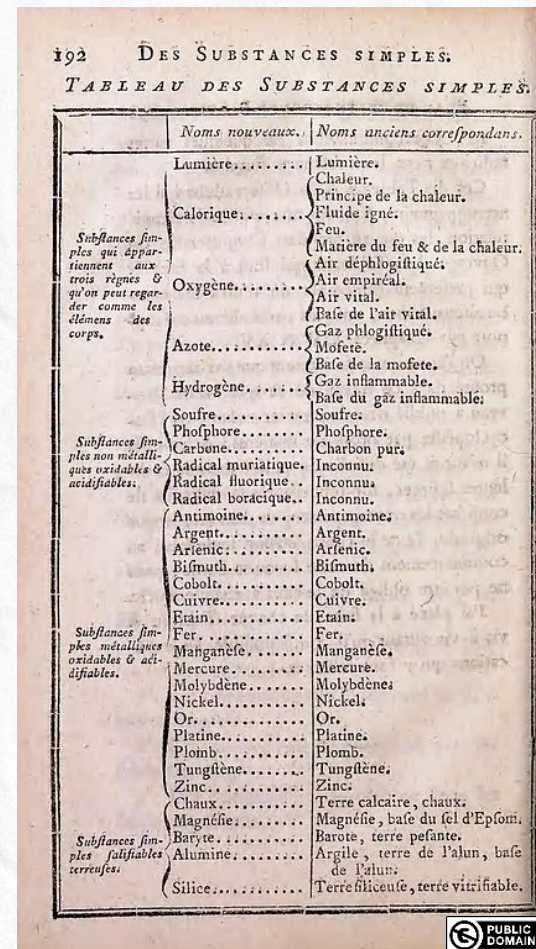 192 DES SUBSTANCES SIMPLES.
TABLEAU DES SUBSTANCES SIMPLES.
Noms nouveaux. Noms anciens correſpondans.
Subſtances ſim-
ples qui appar-
tiennent aux
trois règnes &
qu'on peut regar-
der comme les
élémens des
corps.
Lumière......... Lumière.
Calorique........
Chaleur.
Principe de la chaleur.
Fluide igné.
Feu.
Matière du feu & de la chaleur.
Oxygène.........
Air déphlogiſtiqué.
Air empiréal.
Air vital.
Baſe de l'air vital.
Azote...........
Gaz phlogiſtiqué.
Mofete.
Baſe de la mofete.
Hydrogène.......
Gaz inflammable.
Baſe du gaz inflammable.
Subſtances ſim-
ples non métalli-
ques oxidables &
acidifiables.
Soufre.......... Soufre.
Phoſphore........ Phoſphore.
Carbone......... Charbon pur.
Radical muriatique. Inconnu.
Radical fluorique.. Inconnu.
Radical boracique.. Inconnu.
Subſtances ſim-
ples métalliques
oxidables & aci-
difiables.
Antimoine........ Antimoine.
Argent.......... Argent.
Arſenic.......... Arſenic.
Biſmuth......... Biſmuth.
Cobolt.......... Cobolt.
Cuivre.......... Cuivre.
Etain........... Etain.
Fer............. Fer.
Manganèſe....... Manganèſe.
Mercure......... Mercure.
Molybdène....... Molybdène.
Nickel.......... Nickel.
Or.............. Or.
Platine.......... Platine.
Plomb.......... Plomb.
Tungſtène........ Tungſtène.
Zinc............ Zinc.
Subſtances ſim-
ples ſalifiables
terreuſes.
Chaux.......... Terre calcaire, chaux.
Magnéſie........ Magnéſie, baſe du ſel d'Epſom.
Baryte.......... Barote, terre peſante.
Alumine......... Argile, terre de l'alun, baſe
de l'alun.
Silice........... Terre ſiliceuſe, terre vitrifiable.
PUBLIC
DOMAIN